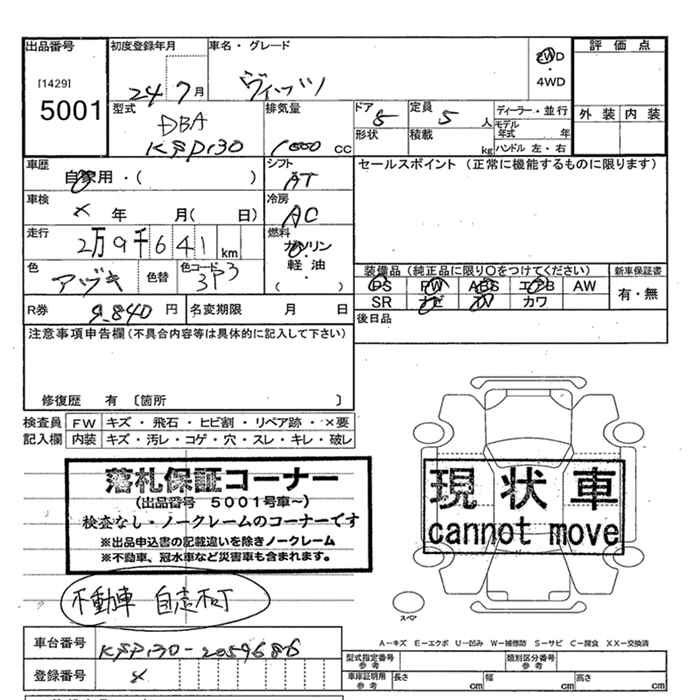 出品番号
[1429]
5001
初度登録年月
24年 7月
車名・グレード
ヴィッツ
2WD
・
4WD
評価点
外装 内装
型式
DBA
KSP130
排気量
1000 CC
ドア
5
形状
定員
5 人
積載
kg
ディーラー・並行
モデル年式 年
ハンドル 左・右
車歴
自家用・( )
シフト
AT
セールスポイント (正常に機能するものに限ります)
車検
× 年 月( 日)
冷房
AC
走行
2万9千641 km
燃料
ガソリン
・
軽油
( ・ )
色
アヅキ
色替
色コード
3P3
装備品 (純正品に限り○をつけてください)
新車保証書
PS PW ABS エアB AW
SR ナビ TV カワ
有・無
R券
9,840 円
名変期限 月 日
後日品
注意事項申告欄(不具合内容等は具体的に記入して下さい)
修復歴 有 〔箇所 〕
検査員 FW キズ・飛石・ヒビ割・リペア跡・×要
記入欄 内装 キズ・汚レ・コゲ・穴・スレ・キレ・破レ
落札保証コーナー
(出品番号 5001号車~)
検査なし・ノークレームのコーナーです
※出品申込書の記載違いを除きノークレーム
※不動車、冠水車など災害車も含まれます。
現状車
cannot move
不動車 自走不可
スペア
A-キズ E-エクボ U-凹み W-補修跡 S-サビ C-腐食 XX-交換済
車台番号
KSP130-2059686
登録番号
×
型式指定番号
参考
類別区分番号
参考
車庫証明用
参考
長さ cm
幅 cm
高さ cm